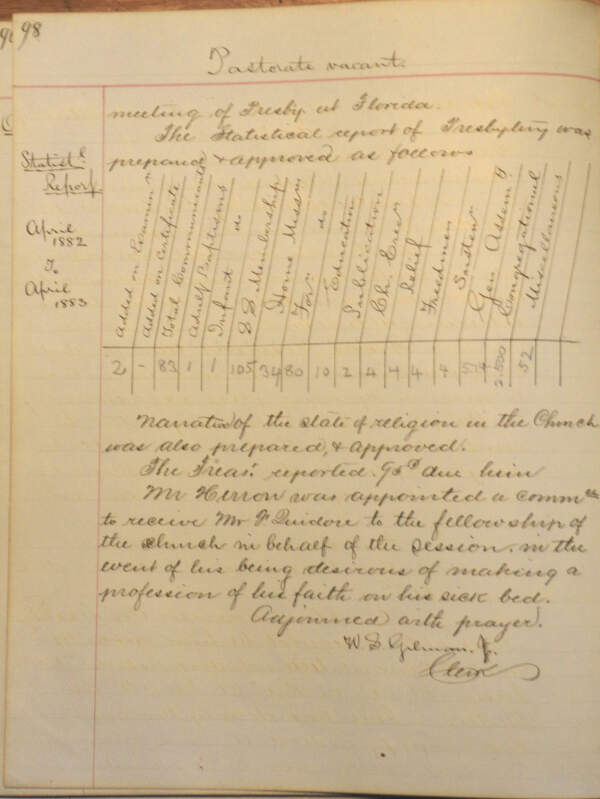 98
Pastorate vacant.
meeting of Presby at Florida.
The Statistical report of Presbytery was
prepared & approved as follows
Statistcl
Report
April
1882
To
April
1883
Added on Examinn
Added on Certificate
Total Communicants
Adult Baptisms
Infant do
SS Membership
Home Missn
Forn do
Education
Publication
Ch. Erecn
Relief
Freedmen
Sustenn
Gen Assemy
Congregational
Miscellaneous
2 - 83 1 1 105 34 80 10 2 4 4 4 4 2.500 52
Narrative of the state of religion in the Church
was also prepared, & approved.
The Treas. reported due him
Mr Herron was appointed a commee
to receive Mr F Quidore to the fellowship of
the church in behalf of the session. in the
event of his being desirous of making a
profession of his faith on his sick bed.
Adjourned with prayer.
W. S. Gilman. Jr.
Clerk